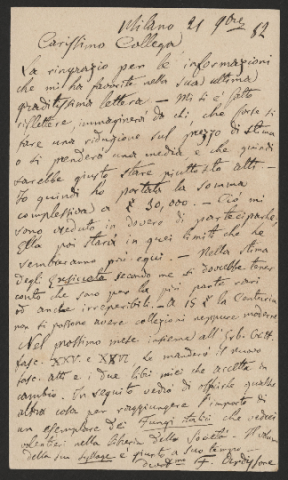 Milano 21 9bre 82
Carissimo Collega
La ringrazio per le informazioni
che mi ha favorite nella sua ultima
graditissima lettera — Mi si è fatto
riflettere, immaginerà da chi, che forse si
fare una riduzione sul prezzo di stima
o si prenderà una media e che quindi
sarebbe giusto stare piuttosto alti. —
Io quindi ho portata la somma
complessiva a £ 30,000. — Ciò mi
sono creduto in dovere di parteciparle,
Ella poi starà in quei limiti che le
sembreranno più equi. — Nella stima
degli Exsiccata secondo me si dovrebbe tener
conto che sono per la più parte rari
ed anche irreperibili. — A 15 £ la Centuria
non si possono avere collezioni neppure moderne
Nel prossimo mese insieme all' Erb. Critt.
fasc. XXV. e XXVI Le manderò il nuovo
fasc. atti e i due libri miei che accetta in
cambio. In seguito vedrò di offrirle qualche
altra cosa per raggiungere l'importo di
un esemplare dei Fungi italici che vedrei
volentieri nella libreria della Società. Il volume
della sua Sylloge è giunto a suo tempo —